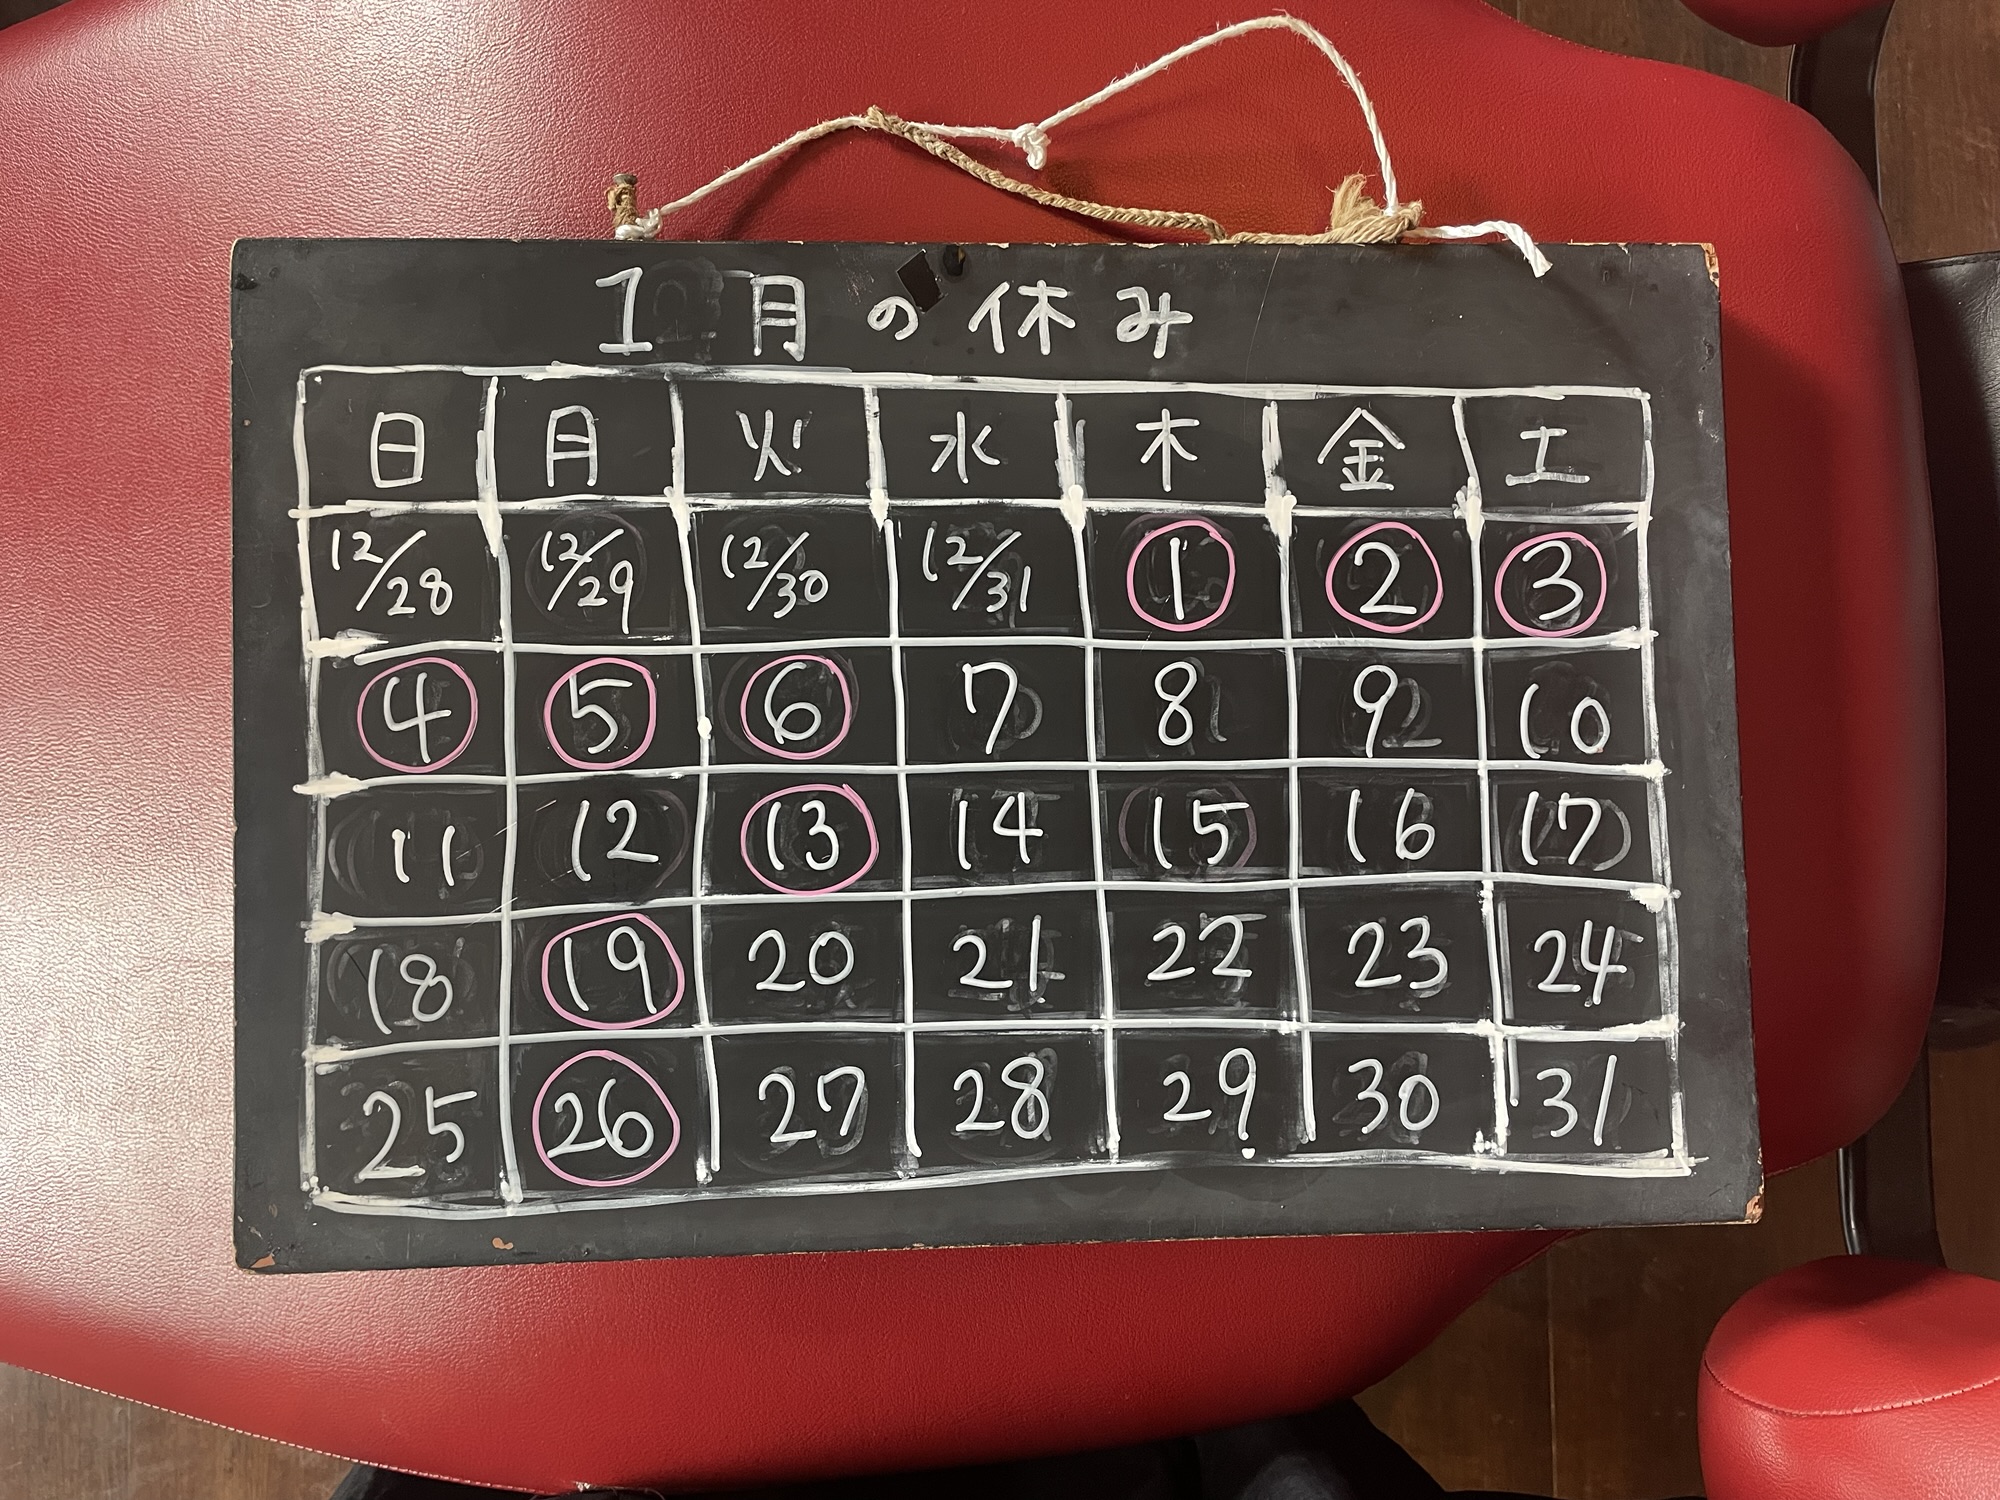 1月の休み
日 月 火 水 木 金 土
12/28 12/29 12/30 12/31 1 2 3
4 5 6 7 8 9 10
11 12 13 14 15 16 17
18 19 20 21 22 23 24
25 26 27 28 29 30 31